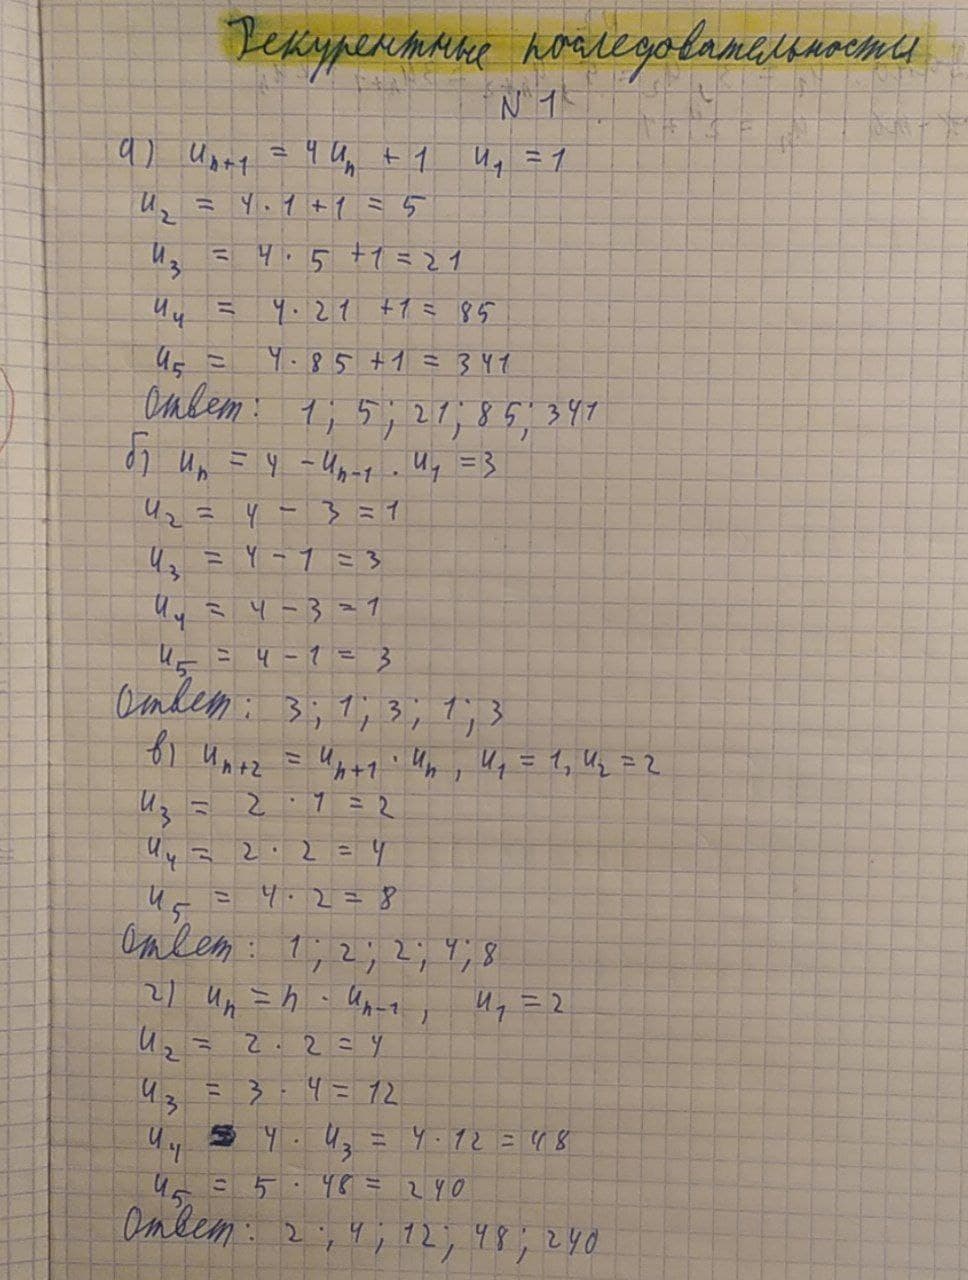 Рекурентные последовательности
N 1
а) u_{n+1} = 4u_n + 1 u_1 = 1
u_2 = 4 · 1 + 1 = 5
u_3 = 4 · 5 + 1 = 21
u_4 = 4 · 21 + 1 = 85
u_5 = 4 · 85 + 1 = 341
Ответ: 1; 5; 21; 85; 341
б) u_n = 4 - u_{n-1} . u_1 = 3
u_2 = 4 - 3 = 1
u_3 = 4 - 1 = 3
u_4 = 4 - 3 = 1
u_5 = 4 - 1 = 3
Ответ: 3; 1; 3; 1; 3
в) u_{n+2} = u_{n+1} · u_n, u_1 = 1, u_2 = 2
u_3 = 2 · 1 = 2
u_4 = 2 · 2 = 4
u_5 = 4 · 2 = 8
Ответ: 1; 2; 2; 4; 8
г) u_n = n · u_{n-1}, u_1 = 2
u_2 = 2 · 2 = 4
u_3 = 3 · 4 = 12
u_4 = 4 · u_3 = 4 · 12 = 48
u_5 = 5 · 48 = 240
Ответ: 2; 4; 12; 48; 240